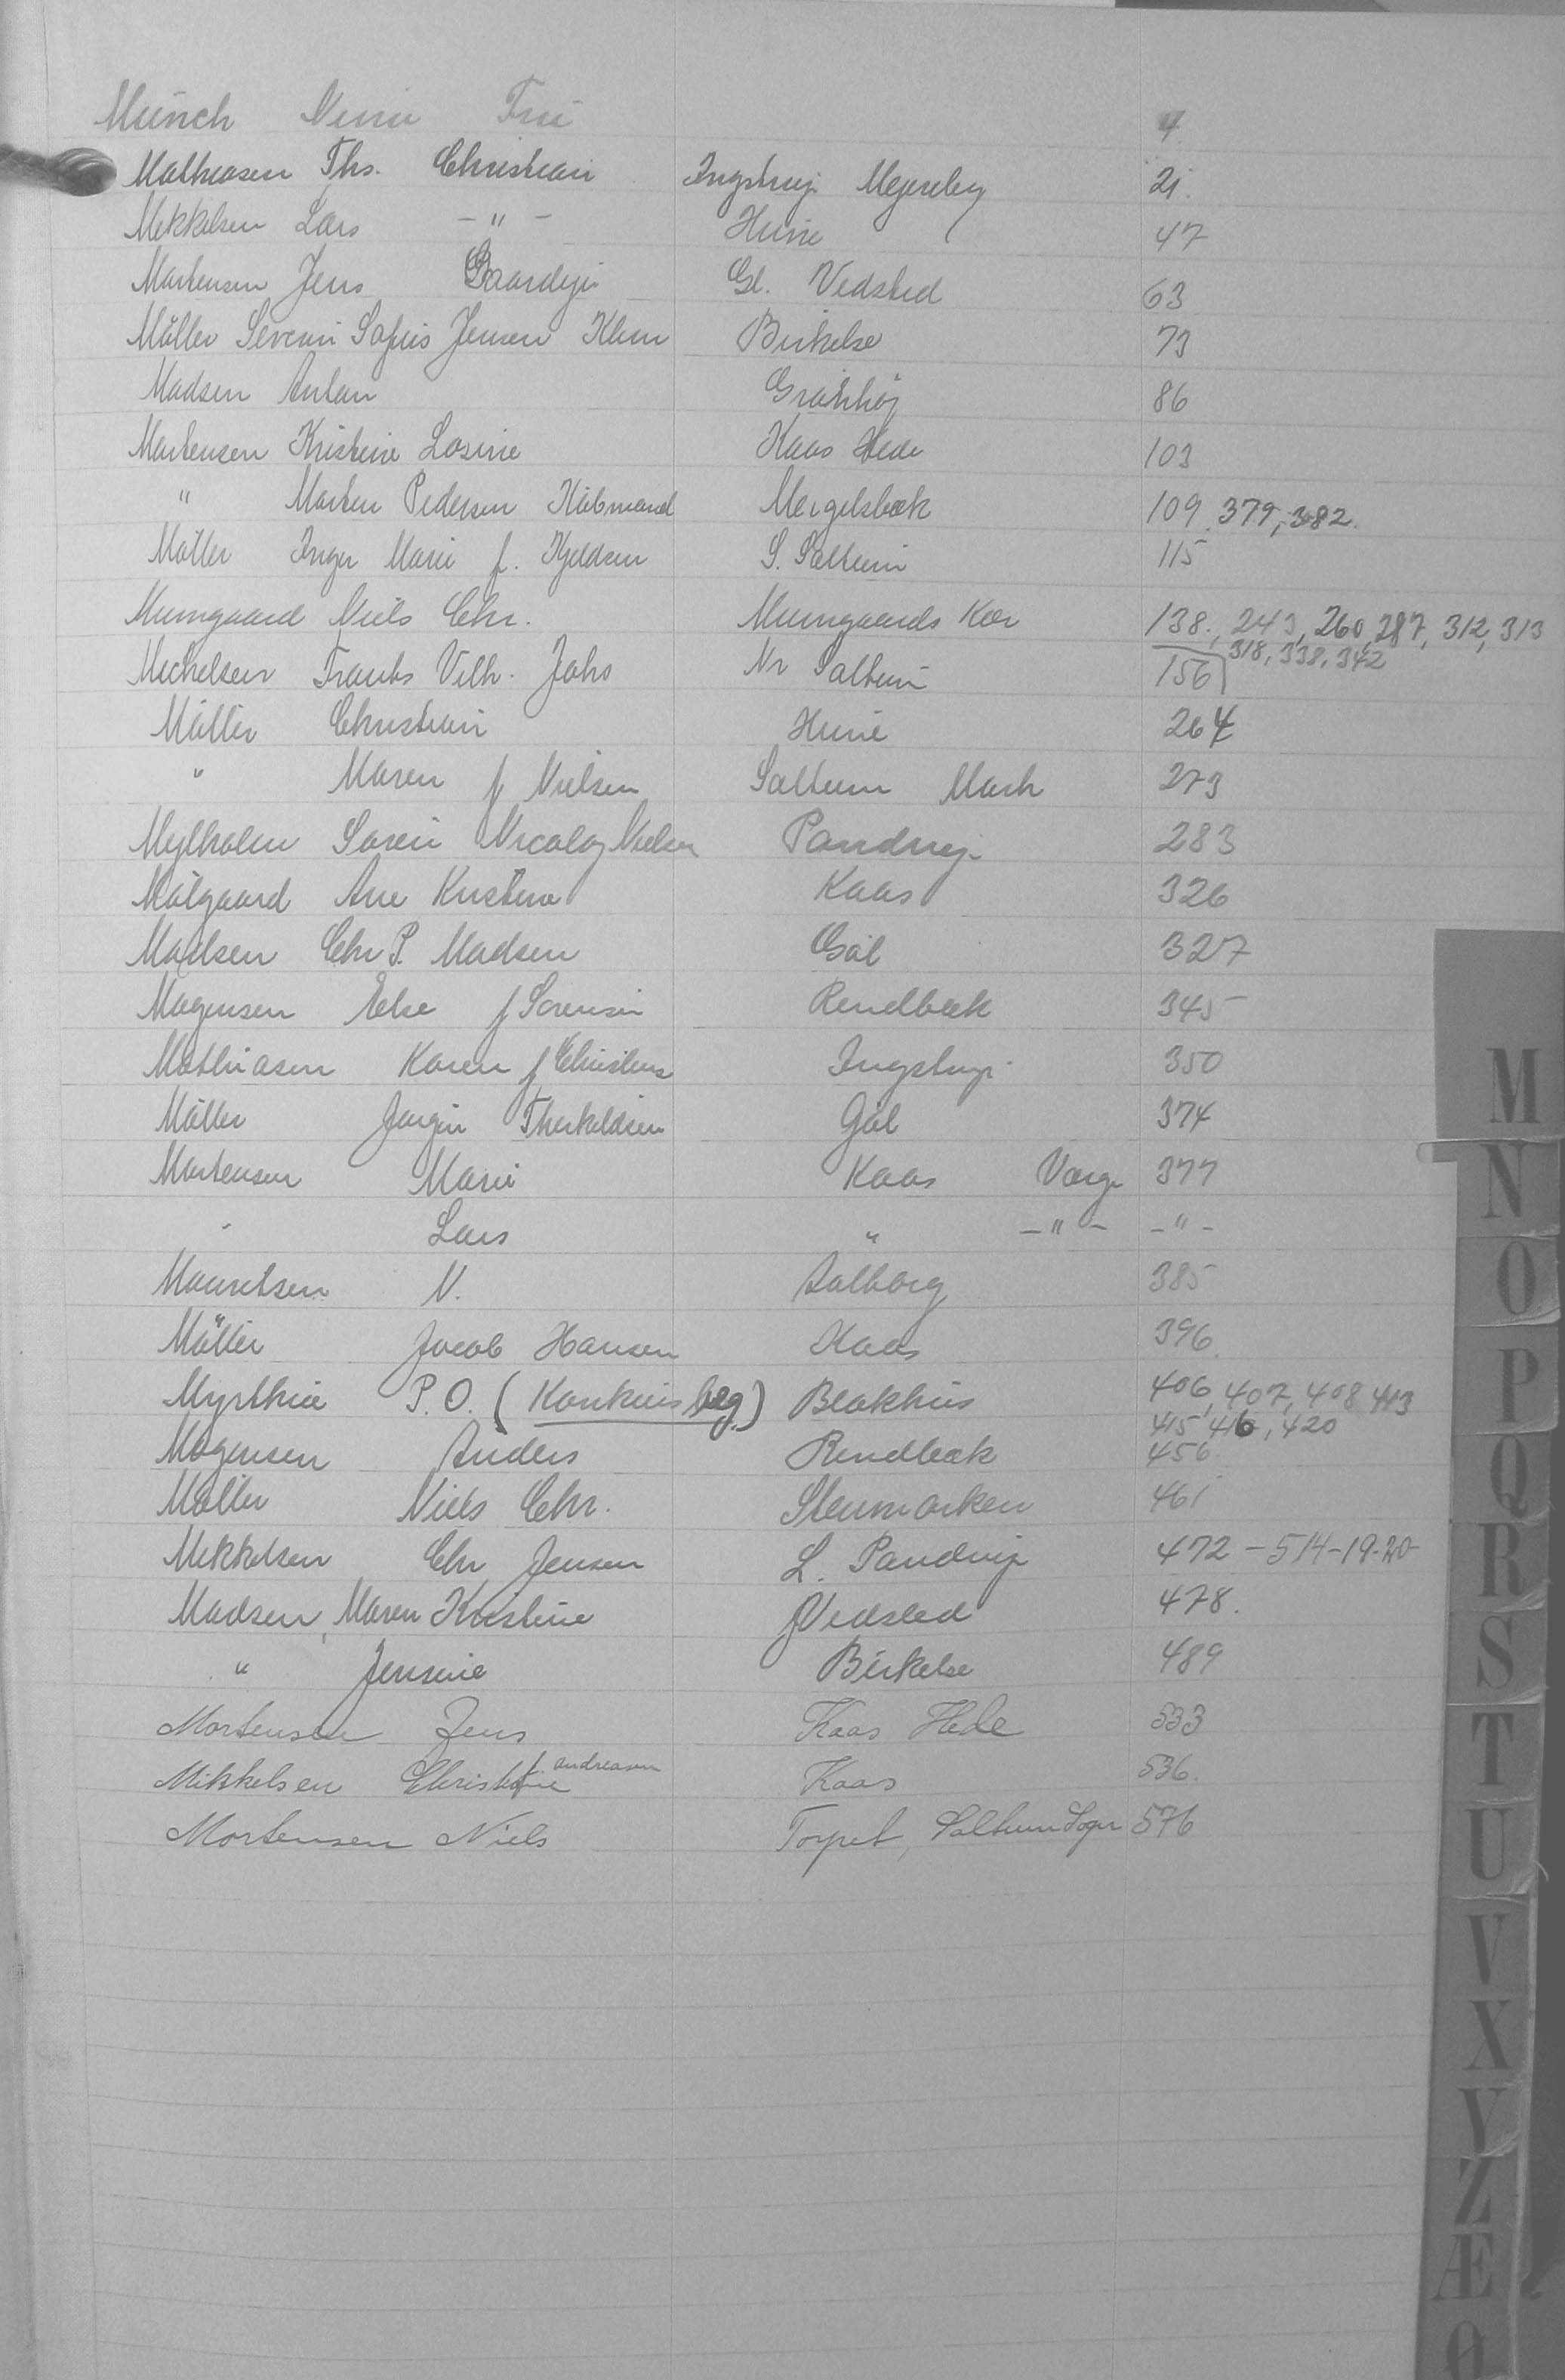 Münch Frú 4
Mathiasen Ths. Christian Ingstrup Mejeribe​s​ty 21.
Mikkelsen Lars - " - Hune 47
Mortensen Jens Gaardejer Gl. Vedsted 63
Möller Severin Sofus Jensen Klem Birkelse 73
Madsen Anton Grönhöj 86
Mortensen Kristine Kaas Hede 103
" Morten Pedersen Köbmand Mergelsbæk 109, 379, 382.
Möller Inger Marie f. Kjeldsen S. Saltum 115
Mumgaard Niels Chr. Mumgaards Kær 138., 243, 260, 287, 312, 313
318, 338, 342
Michelsen Frants Vilh. Johs Nr Saltum 156
Möller Christian Hune 264
" Maren f Nielsen Saltum Mark 273
Mylholm Sören Nicolaj Nielsen Pandrup 283
Mölgaard Ane Kristine Kaas 326
Madsen Chr P. Madsen Göl 327
Mogensen Else f Sörensen Rendbæk 345
Mathiasen Karen f Christens Ingstrup 350
Möller Jörgen Therkeldsen Göl 374
Mortensen Marie Kaas Værge 377
" Lars " - " - - " -
Mouritsen N. Aalborg 385
Möller Jacob Hansen Kaas 396.
P. O. (Konkursbeg.) Blokhus 406, 407, 408 413
415 416, 420
Mogensen Anders Rendbæk 456.
Möller Niels Chr. Stenmarken 461
Mikkelsen Chr Jensen L. Pandrup 472 - 514-19-20
Madsen, Maren Kristine Vedsted 478.
" Jensine Birkelse 489
Mortensen Jens Kaas Hede 533
Mikkelsen Christine f. Andreasen Kaas 536.
Mortensen Niels Torpet, Saltum Sogn 576
M
N
O
P
Q
R
S
T
U
V
X
Y
Z
Æ
Ø